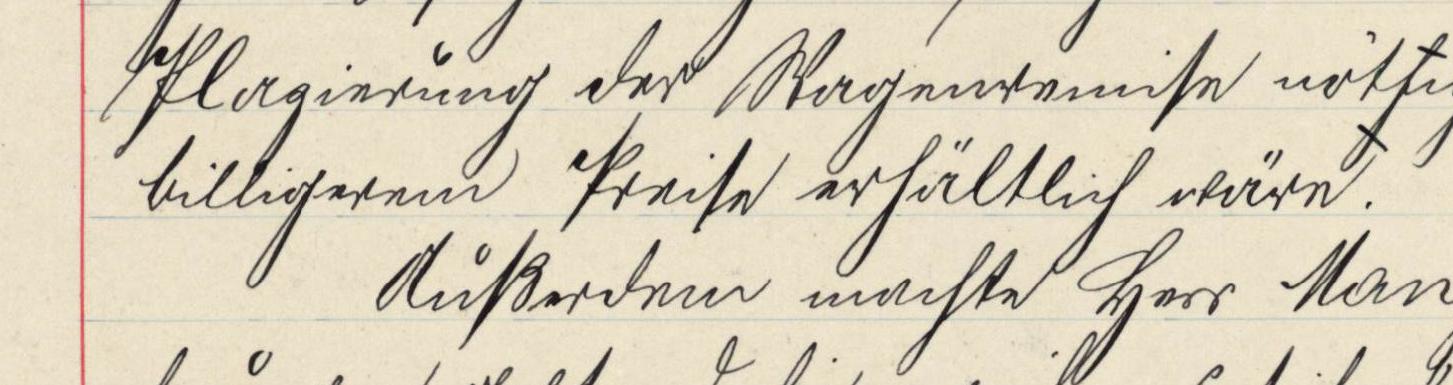 Plazierung der Wagenremise nöthi
billigerem Preise erhältlich wäre.
Außerdem machte Herr Man